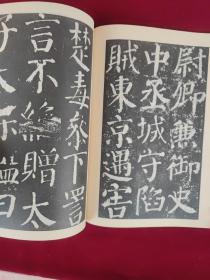 尉卿兼御史
中丞城守陷
賊東京遇害
楚毒參下詈
言不絶贈太
子太保謚曰